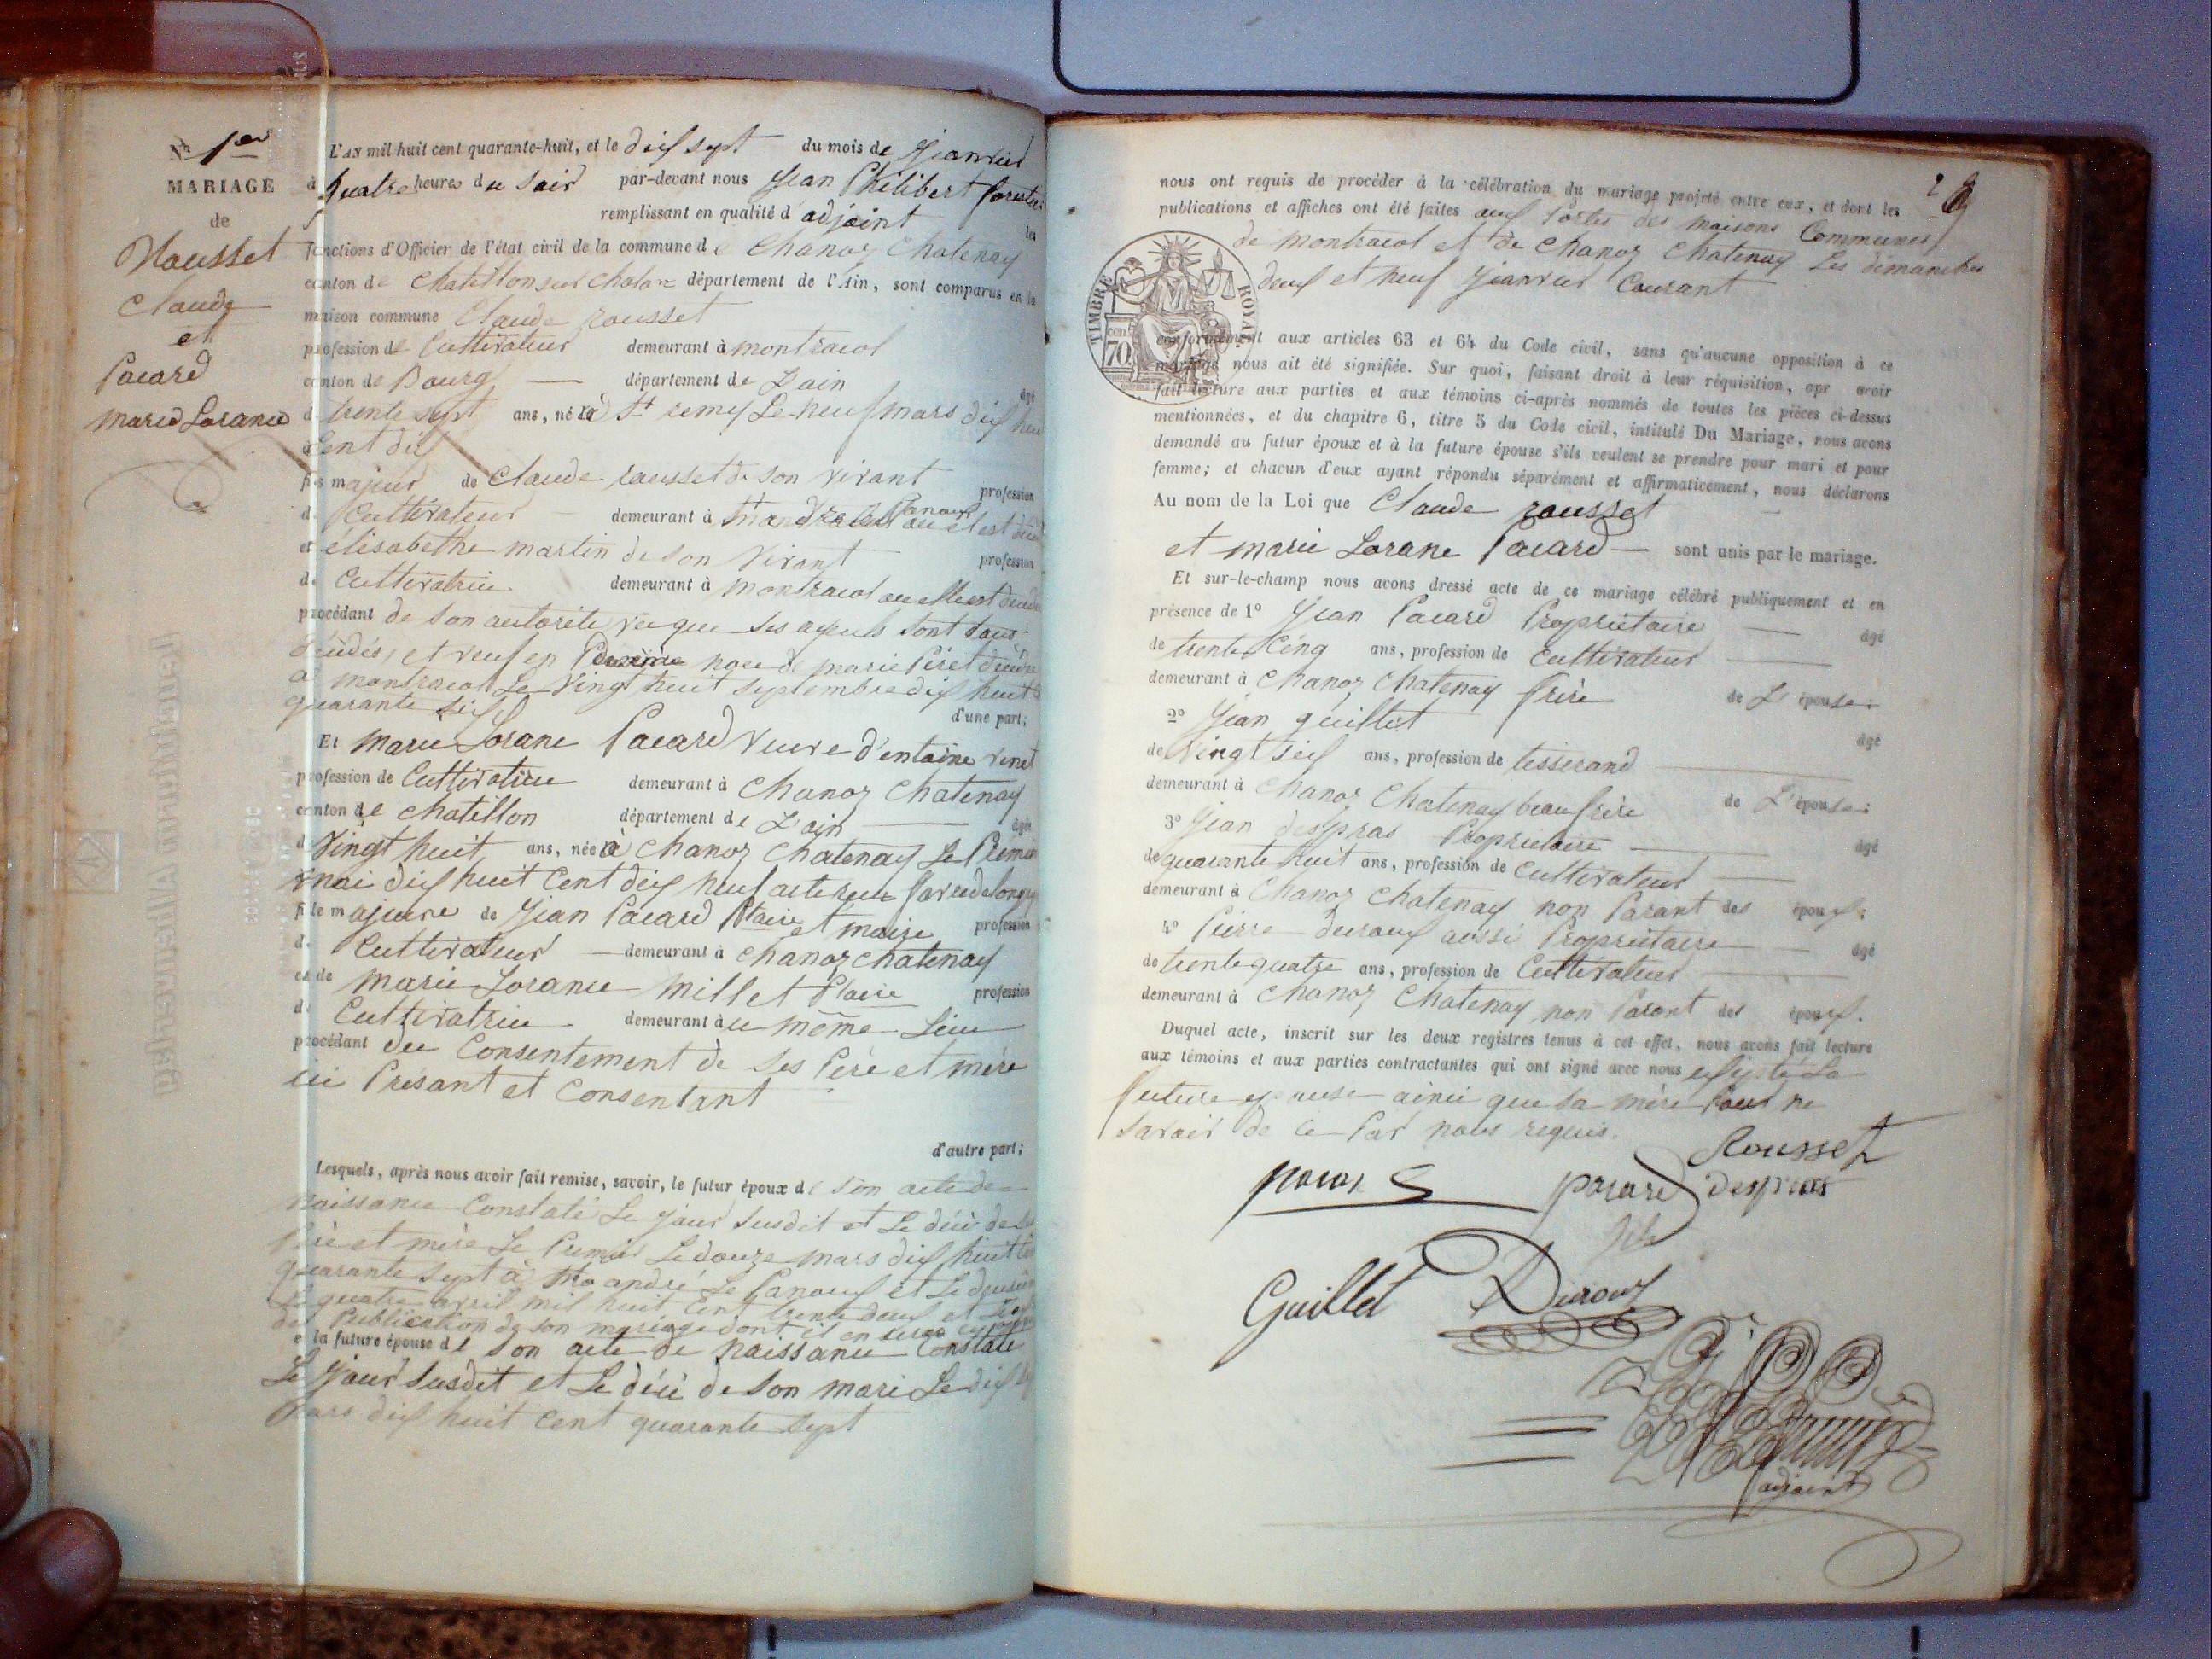 N° 1er
MARIAGE
de
Rousset
Claude
et
Pacard
Marie Lorance
L'AN mil huit cent quarante-huit, et le dix sept du mois de Janvier
à quatre heures du Soir par-devant nous Jean Philibert
remplissant en qualité d'adjoint les
fonctions d'Officier de l'état civil de la commune de Chanoz Chatenay
canton de Chatillon sur Chalar département de l'Ain, sont comparus en la
maison commune Claude rousset
profession de Cultivateur demeurant à montracol
canton de Bourg département de L'ain âgé
de trente sept ans, né à St remy Le neuf mars dix huit
Cent dix
fils majeur de Claude rousset de son vivant profession
de Cultivateur demeurant à St andré le Panoux où il est
et élisabethe martin de son vivant profession
de Cultivatrice demeurant à montracol ou elle est décédée
procédant de son autorité vu que ses ayeuls sont tous
décédés, et veuf en noce de marie Péret décédée
à montracol Le vingt huit septembre dix huit
quarante six
d'une part;
Et marie Lorane Pacard veuve d'entoine venet
profession de Cultivatrice demeurant à Chanoz Chatenay
canton de chatillon département de L'ain âgée
de Vingt huit ans, née à Chanoz Chatenay Le Premier
mai dix huit Cent dix neuf acte
fille majeure de Jean Pacard Maire profession
de Cultivateur demeurant à Chanoz Chatenay
et de marie Lorance Millet profession
de Cultivatrice demeurant au même Lieu
procédant du Consentement de Ses Père et mère
ici Présant et Consentant
d'autre part;
Lesquels, après nous avoir fait remise, savoir, le futur époux de son acte de
naissance Constaté Le Jour susdit et Le décè de ses
Père et mère Le Premier Le douze mars dix huit
quarante sept à St andré Le Panoux et Le deusième
Le quatre avril mil huit Cent trente deux et
des Publication de son mariage dont il en
e la future épouse de son acte de naissance Constaté
Le Jour susdit et Le décè de son mari Le dix
mars dix huit Cent quarante sept
2
nous ont requis de procéder à la célébration du mariage projeté entre eux, et dont les
publications et affiches ont été faites aux Portes des maisons Communes
de montracol et de Chanoz Chatenay Les dimanches
deux et neuf Janvier Courant
TIMBRE ROYAL
cen 70
conformément aux articles 63 et 64 du Code civil, sans qu'aucune opposition à ce
mariage nous ait été signifiée. Sur quoi, faisant droit à leur réquisition, apr avoir
fait lecture aux parties et aux témoins ci-après nommés de toutes les pièces ci-dessus
mentionnées, et du chapitre 6, titre 5 du Code civil, intitulé Du Mariage, nous avons
demandé au futur époux et à la future épouse s'ils veulent se prendre pour mari et pour
femme; et chacun d'eux ayant répondu séparément et affirmativement, nous déclarons
Au nom de la Loi que Claude rousset
et marie Lorane Pacard sont unis par le mariage.
Et sur-le-champ nous avons dressé acte de ce mariage célébré publiquement et en
présence de 1° Jean Pacard Propriétaire âgé
de trente Cinq ans, profession de Cultivateur
demeurant à Chanoz Chatenay frère de L'épouse;
2° Jean guillet âgé
de Vingt six ans, profession de tisserand
demeurant à Chanoz Chatenay beau frère de L'épouse;
3° Jean despras Propriétaire âgé
de quarante huit ans, profession de Cultivateur
demeurant à Chanoz Chatenay non Parant des époux;
4° Pierre duroux aussi Propriétaire âgé
de trente quatre ans, profession de Cultivateur
demeurant à Chanoz Chatenay non Parant des époux.
Duquel acte, inscrit sur les deux registres tenus à cet effet, nous avons fait lecture
aux témoins et aux parties contractantes qui ont signé avec nous exsepté La
future epouse ainci que sa mère Pour ne
Savoir de ce Par nous requis.
Rousset
pacard despras
fils
Guillet Duroux
adjoint